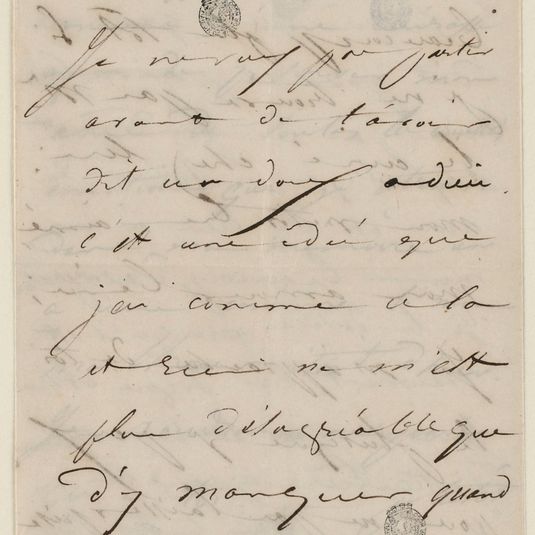 Je ne veux pas partir
avant de t'avoir
dit un doux adieu.
c'est une idée que
j'ai comme cela
et rien ne m'est
plus désagréable que
d'y manquer quand